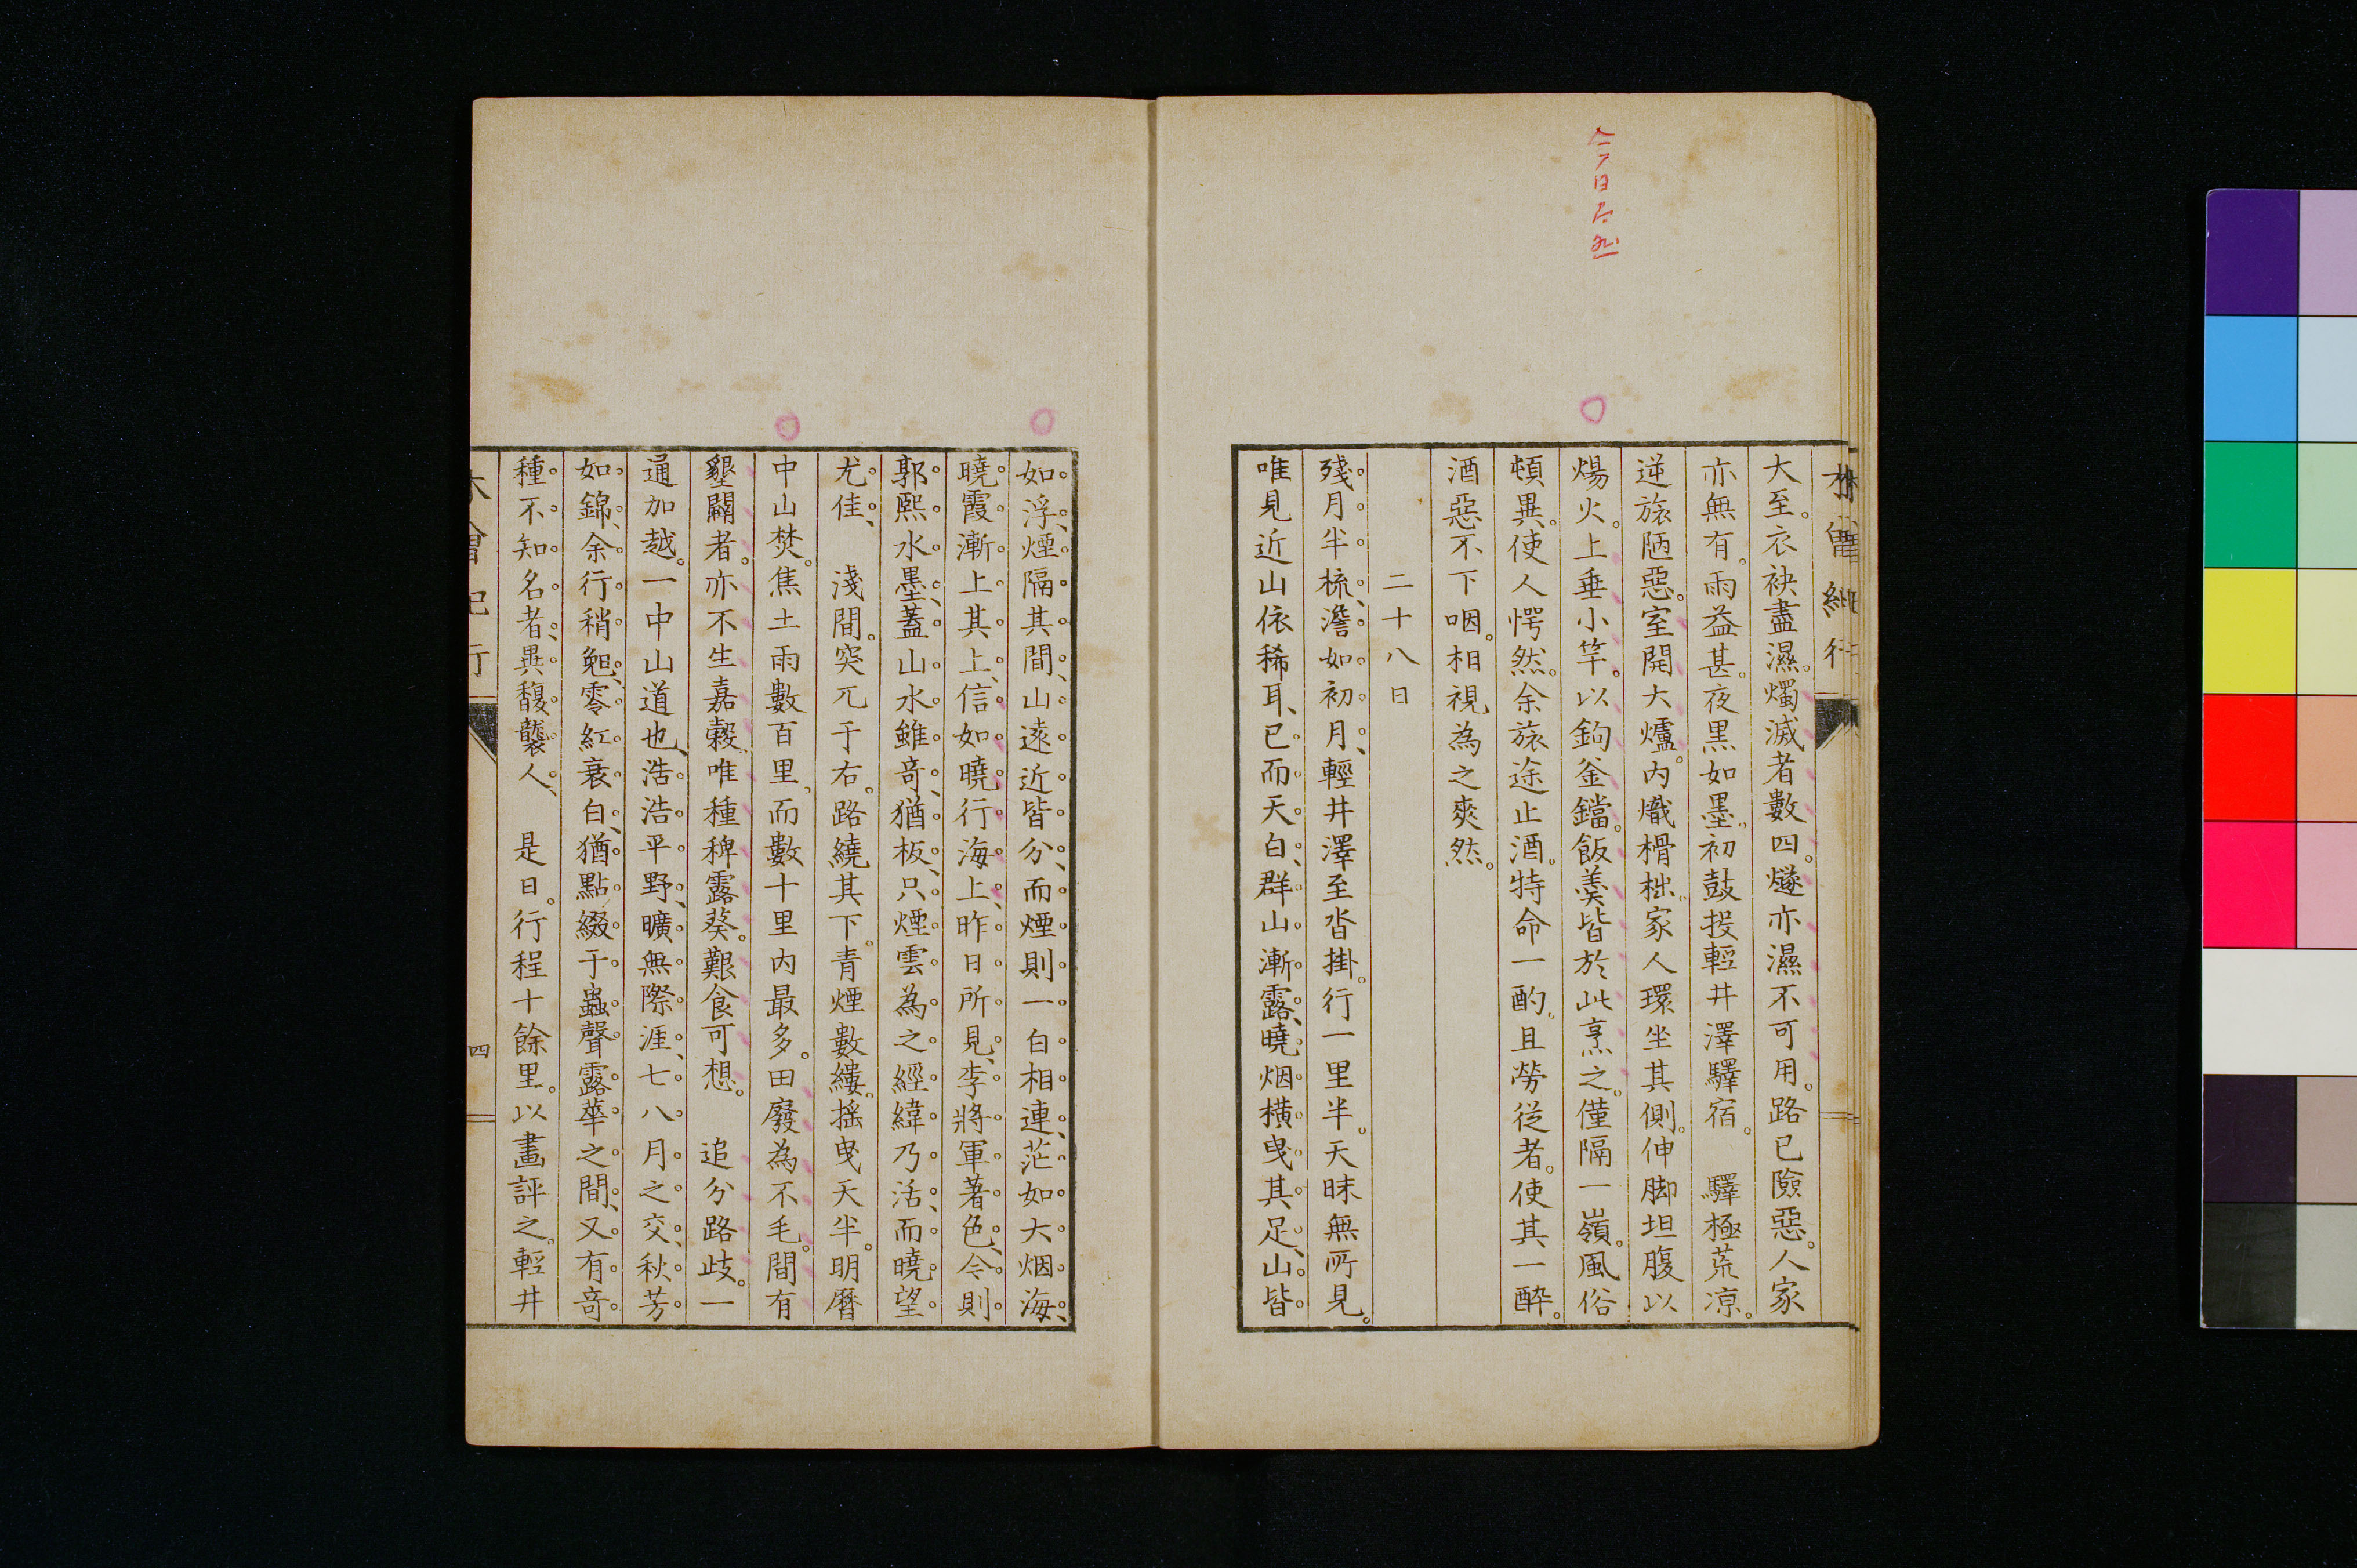 今日有此
大至。衣袂盡濕。燭滅者數四。燧亦濕不可用。路已險惡。人家
亦無有。雨益甚。夜黒如墨。初鼓投輕井澤驛宿。　驛極荒凉。
逆旅陋惡。室開大爐。内熾榾柮。家人環坐其側。伸脚坦腹以
煬火。上垂小竿。以鉤釜鐺。飯羹皆於此烹之。僅隔一嶺。風俗
頓異。使人愕然。余旅途止酒。特命一酌。且勞從者。使其一醉。
酒惡不下咽。相視為之爽然。
二十八日
殘月半梳、澹如初月、輕井澤至沓掛。行一里半。天昧無所見。
唯見近山依稀耳、已而天白、群山漸露、曉烟横曳其足、山皆
如浮、煙隔其間、山遠近皆分、而煙則一白相連、茫如大烟海、
曉霞漸上其上、信如曉行海上、昨日所見、李將軍著色、今則
郭熙水墨、蓋山水雖竒、猶板、只煙雲為之經緯乃活、而曉望
尤佳、　淺間。突兀于右。路繞其下。青煙數縷。揺曳天半。明暦
中山焚。焦土雨數百里。而數十里内最多。田廢為不毛。間有
墾闢者。亦不生嘉穀。唯種稗露葵。艱食可想。　追分路歧。一
通加越。一中山道也、浩浩平野、曠無際涯、七八月之交、秋芳
如錦、余行稍晩、零紅衰白、猶點綴于蟲聲露華之間、又有竒
種不知名者、異馥襲人、　是日。行程十餘里。以畫評之。輕井
四